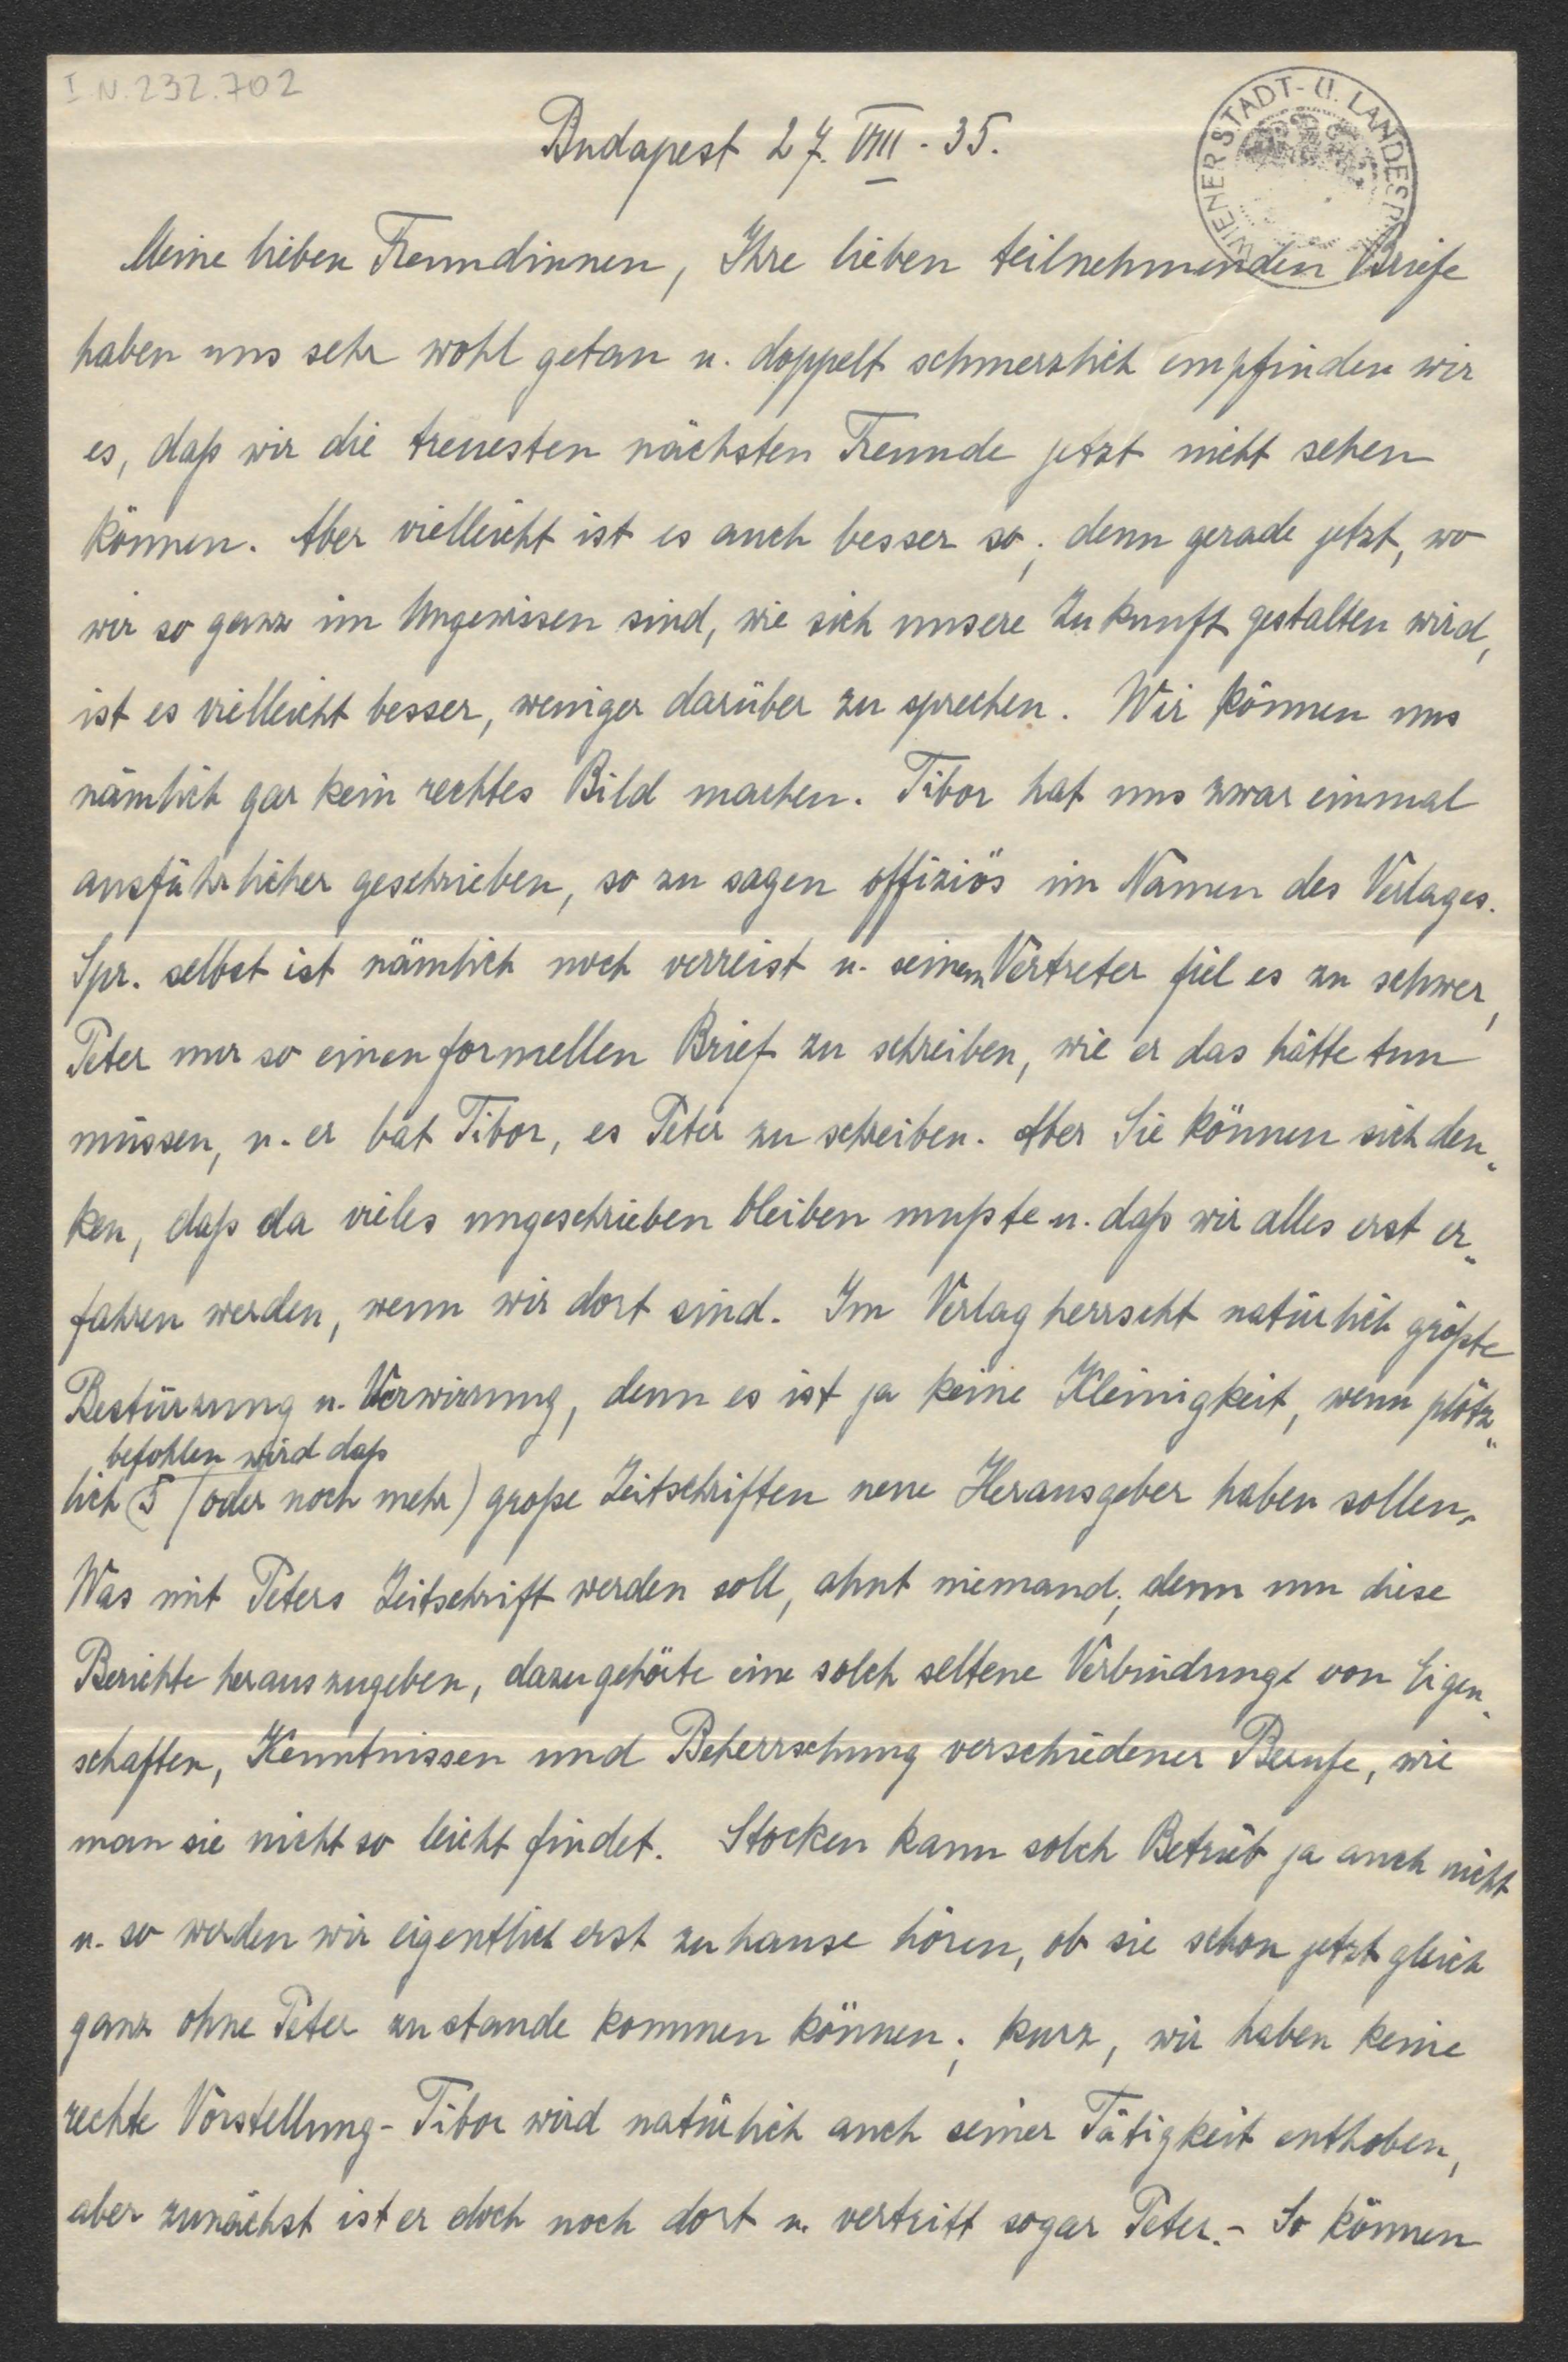 I N. 232.702
WIENER STADT- U. LANDES
Budapest 27. VIII. 35.
Meine lieben Freundinnen, Ihre lieben teilnehmenden Briefe
haben uns sehr wohl getan u. doppelt schmerzlich empfinden wir
es, daß wir die treuesten nächsten Freunde jetzt nicht sehen
können. Aber vielleicht ist es auch besser so; denn gerade jetzt, wo
wir so ganz im Ungewissen sind, wie sich unsere Zukunft gestalten wird,
ist es vielleicht besser, weniger darüber zu sprechen. Wir können uns
nämlich gar kein rechtes Bild machen. Tibor hat uns zwar einmal
ausführlicher geschrieben, so zu sagen offiziös im Namen des Verlages.
Spr. selbst ist nämlich noch verreist u. seinem Vertreter fiel es zu schwer,
Peter nur so einen formellen Brief zu schreiben, wie er das hätte tun
müssen, u. er bat Tibor, es Peter zu schreiben. Aber Sie können sich den„
ken, daß da vieles ungeschrieben bleiben mußte u. daß wir alles erst er„
fahren werden, wenn wir dort sind. Im Verlag herrscht natürlich größte
Bestürzung u. Verwirrung, denn es ist ja keine Kleinigkeit, wenn plötz„
befohlen wird daß
lich 5 (oder noch mehr) große Zeitschriften neue Herausgeber haben sollen.
Was mit Peters Zeitschrift werden soll, ahnt niemand; denn um diese
Berichte herauszugeben, dazu gehörte eine solch seltene Verbindung von Eigen„
schaften, Kenntnissen und Beherrschung verschiedener Berufe, wie
man sie nicht so leicht findet. Stocken kann solch Betrieb ja auch nicht
u. so werden wir eigentlich erst zu hause hören, ob sie schon jetzt gleich
ganz ohne Peter zu stande kommen können; kurz, wir haben keine
rechte Vorstellung - Tibor wird natürlich auch seiner Tätigkeit enthoben,
aber zunächst ist er doch noch dort u. vertritt sogar Peter. - So können